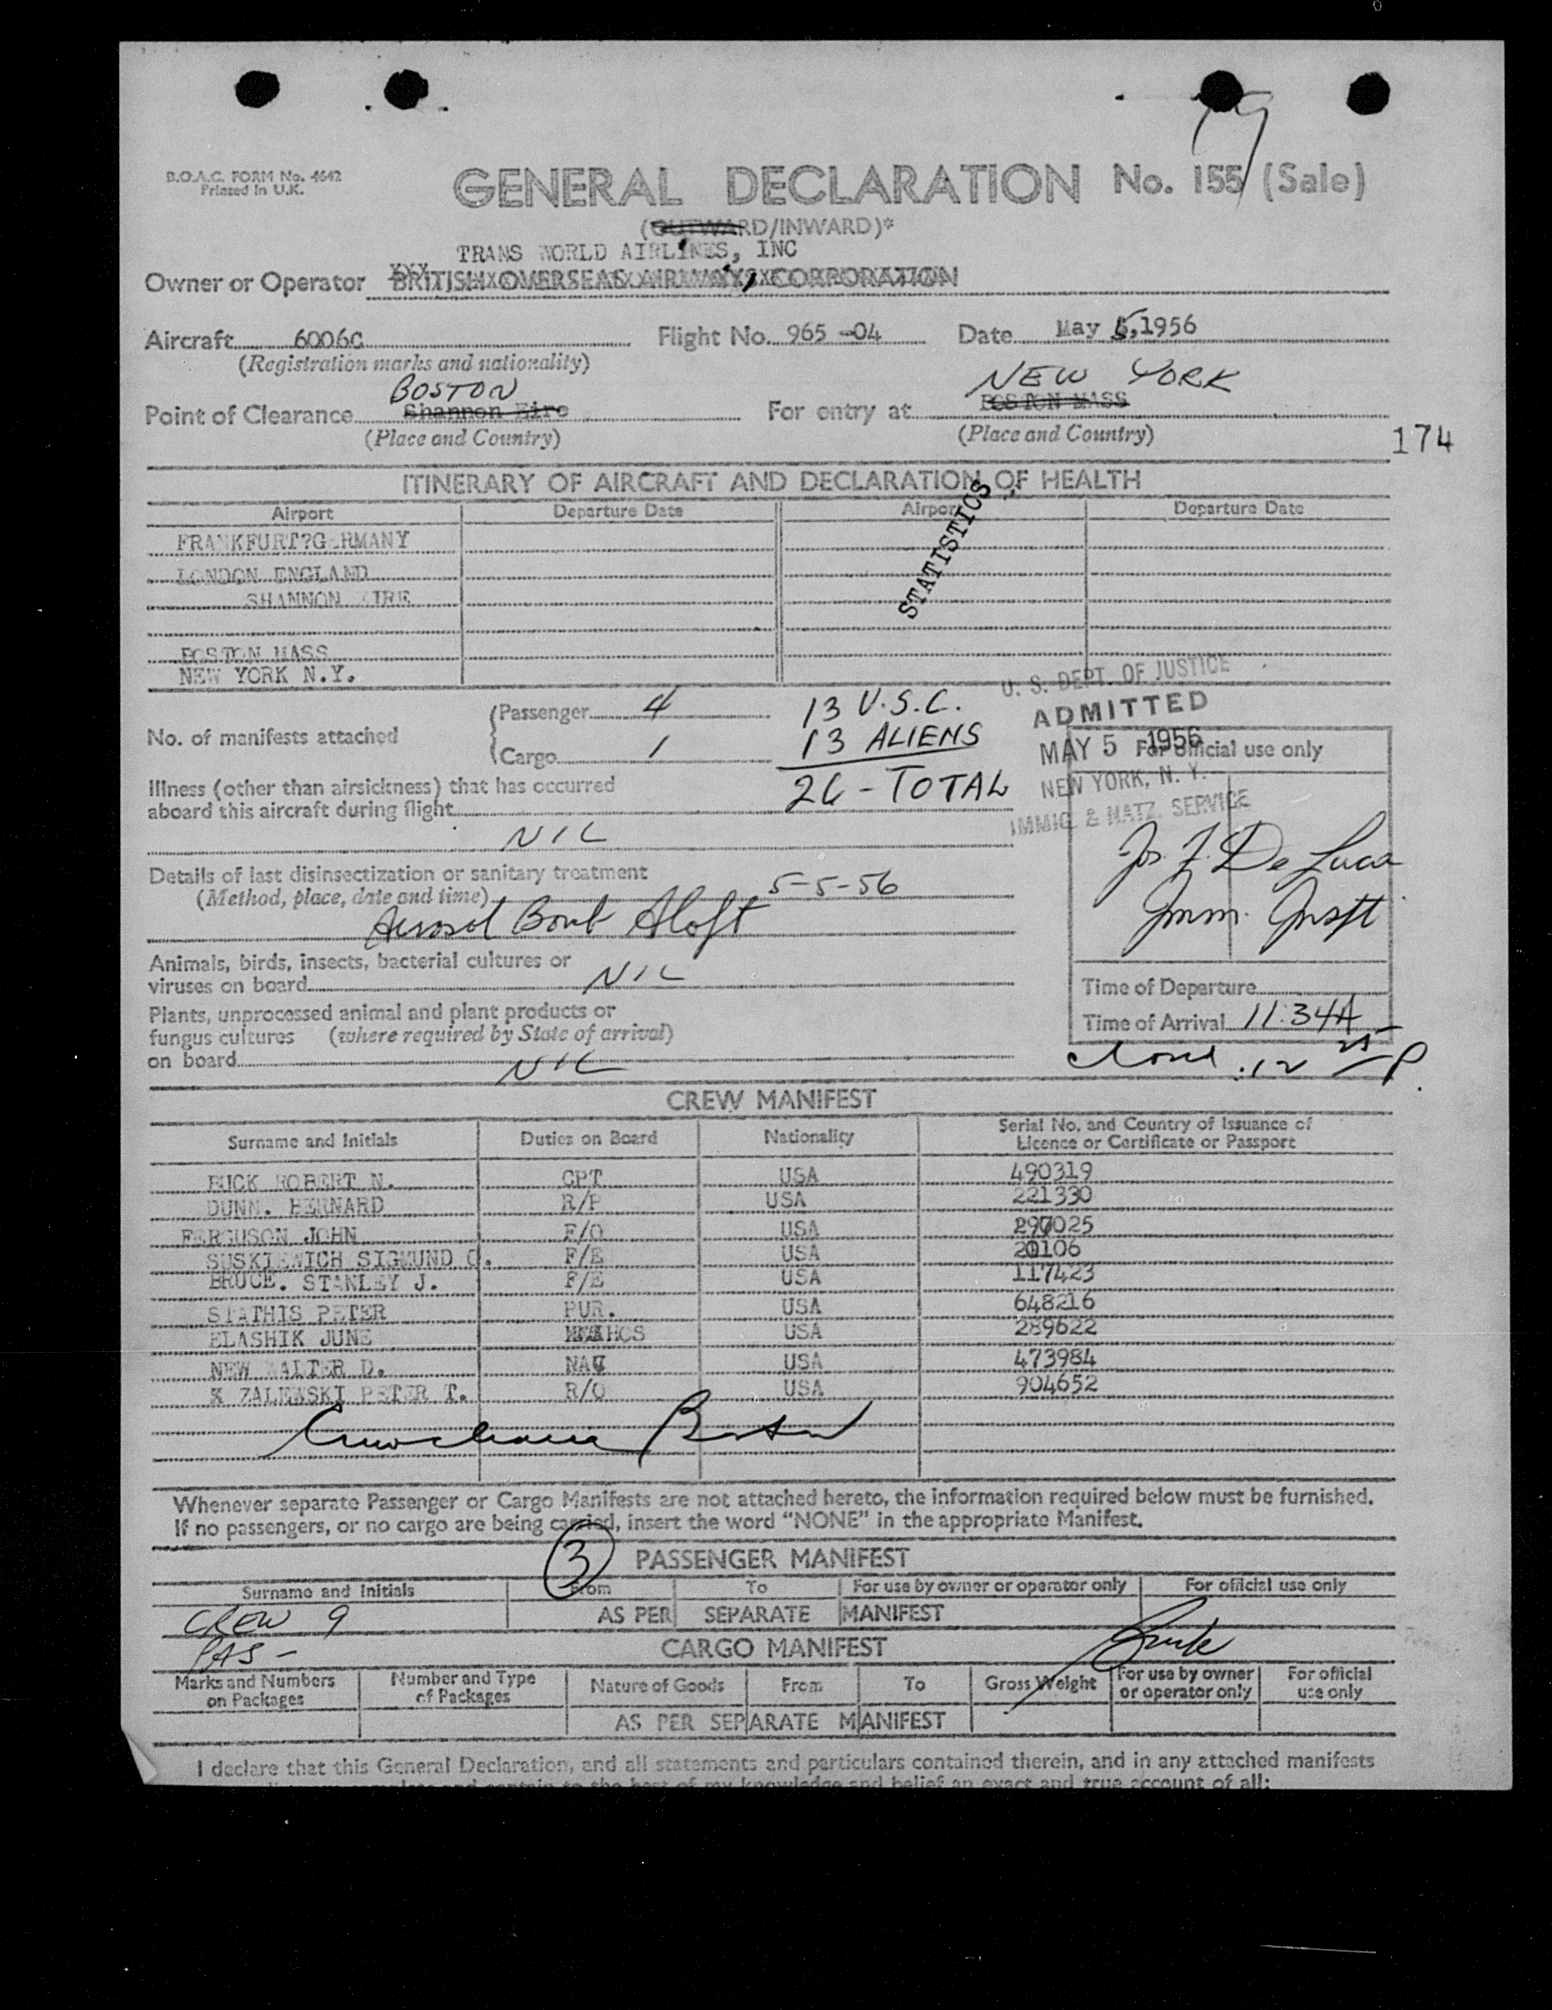 B.O.A.C. FORM No. 4642
Printed in U.K.
GENERAL DECLARATION No. 155 (Sale)
(OUTWARD/INWARD)*
TRANS WORLD AIRLINES, INC
Owner or Operator BRITISH OVERSEAS AIRWAYS CORPORATION
Aircraft 6006C Flight No. 965 -04 Date May 5,1956
(Registration marks and nationality)
BOSTON NEW YORK
Point of Clearance Shannon Eire For entry at BOSTON MASS
(Place and Country) (Place and Country)
174
ITINERARY OF AIRCRAFT AND DECLARATION OF HEALTH
Airport Departure Date Airport Departure Date
STATISTICS
FRANKFURT?GERMANY
LONDON ENGLAND
SHANNON EIRE
BOSTON MASS
NEW YORK N.Y.
U. S. DEPT. OF JUSTICE
ADMITTED
MAY 5 1956
NEW YORK, N. Y.
IMMIG. & NATZ. SERVICE
No. of manifests attached
(Passenger 4 13 U.S.C.
(Cargo 1 13 ALIENS
26 - TOTAL
For official use only
Illness (other than airsickness) that has occurred
aboard this aircraft during flight
NIL
Jos. F. De Luca
Imm. Inspt
Details of last disinsectization or sanitary treatment
(Method, place, date and time) 5-5-56
Aerosol Bomb Aloft
Animals, birds, insects, bacterial cultures or
viruses on board NIL
Time of Departure
Plants, unprocessed animal and plant products or
fungus cultures (where required by State of arrival)
on board NIL
Time of Arrival 11:34A
12 25 P.
CREW MANIFEST
Surname and Initials Duties on Board Nationality Serial No. and Country of Issuance of
Licence or Certificate or Passport
BUCK ROBERT N. CPT USA 490319
DUNN. BERNARD R/P USA 221330
FERGUSON JOHN F/O USA 297025
SUSKIEWICH SIGMUND C. F/E USA 20106
BRUCE. STANLEY J. F/E USA 117423
STATHIS PETER PUR. USA 648216
ELASHIK JUNE HOS USA 289622
NEW WALTER D. NAV USA 473984
X ZALEWSKI PETER T. R/O USA 904652
Whenever separate Passenger or Cargo Manifests are not attached hereto, the information required below must be furnished.
If no passengers, or no cargo are being carried, insert the word "NONE" in the appropriate Manifest.
3 PASSENGER MANIFEST
Surname and Initials From To For use by owner or operator only For official use only
CREW 9 AS PER SEPARATE MANIFEST
PAS -
CARGO MANIFEST
Marks and Numbers on Packages Number and Type of Packages Nature of Goods From To Gross Weight For use by owner or operator only For official use only
AS PER SEPARATE MANIFEST
I declare that this General Declaration, and all statements and particulars contained therein, and in any attached manifests
to the best of my knowledge and belief an exact and true account of all: